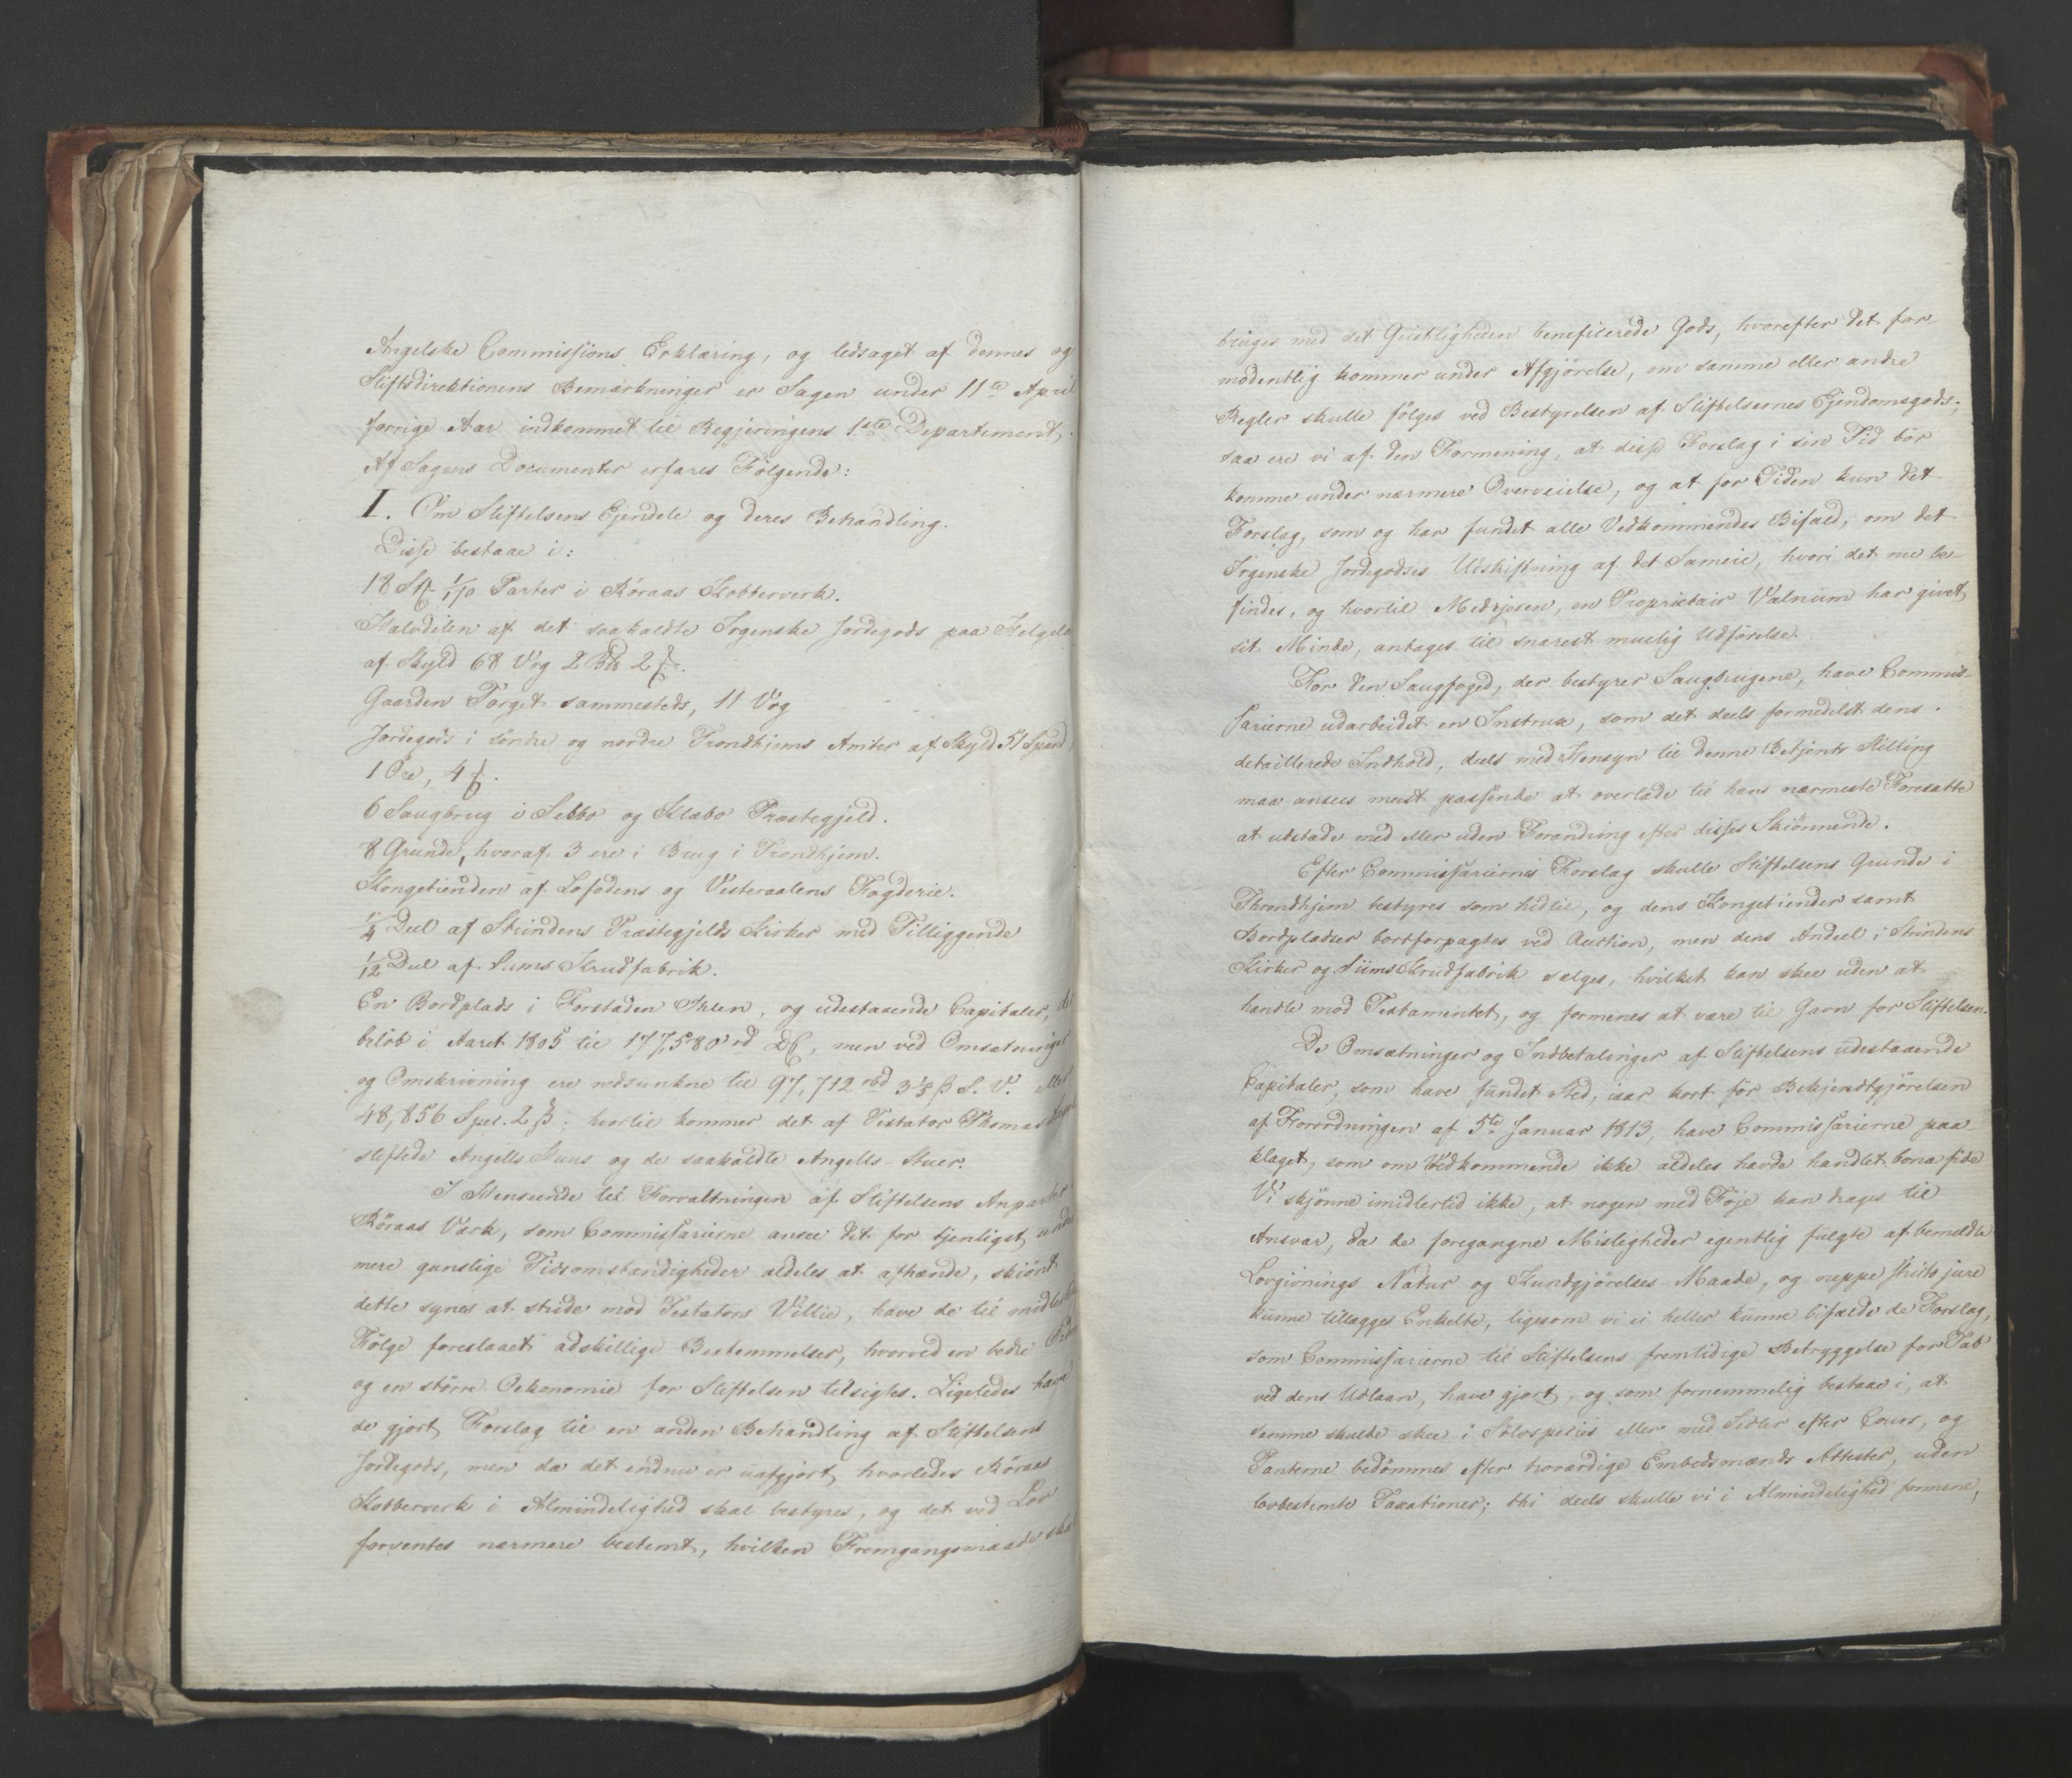 Angelske Commissions Erklæring, og ledsaget af dennes og
Stiftsdirektionens Bemærkninger er Sagen under 11te April
forrige Aar indkommet til Regjeringens 1ste Departement.
Af Sagens Documenter erfares Følgende:
I. Om Stiftelsens Ejendele og deres Behandling.
Disse bestaae i:
18 Parter i Røraas Kobberverk.
Halvdelen af det saakaldte Irgenske Jordegods paa Helgel
af Skyld 68 Vog 2
Gaarden Torget sammesteds, 11 Vog
Jordegods i søndre og nordre Trondhjems Amter af Skyld 51 Spand,
1 Øre, 4
6 Saugbrug i Selbo og Klæbo Præstegjeld.
8 Grunde, hvoraf 3 ere i Brug i Trondhjem.
Kongetienden af Lofodens og Vesteraalens Fogderie.
1/4 Deel af Strindens Præstegjelds Kirker med Tilliggende
1/12 Deel af Liums Krudfabrik.
En Bordplads i Forstaden Ihlen, og udestaaende Capitaler, de
beløb i Aaret 1805 til 177,580 rd men ved Omsætninger
og Omskrivning ere nedsunkne til 97,712 rbd 3 1/5 ß S. V. eller
48,856 Spec. 2 ß; hvortil kommer det af Testator Thomas
stiftede Angells Huus og de saakaldte Angells Stuer.
I Henseende til Forvaltningen af Stiftelsens Anparter
Røraas Værk, som Commissarierne ansee det for tjenligst under
mere gunstige Tidsomstændigheder aldeles at afhænde, skiønt
dette synes at stride mod Testators Villie, have de til
Følge foreslaaet adskillige Bestemmelser, hvorved en bedre
og en større Oekonomie for Stiftelsen tilsigtes. Ligeledes have
de gjort Forslag til en anden Behandling af Stiftelsens
Jordegods, men da det endnu er uafgjort, hvorledes Røraas
Kobberverk i Almindelighed skal bestyres, og det ved Lov
forventes nærmere bestemt, hvilken Fremgangsmaade skal
bruges med det Geistligheden beneficerede Gods, hvorefter det for-
modentlig kommer under Afgjørelse, om samme eller andre
Regler skulle følges ved Bestyrelsen af Stiftelsernes Ejendomsgods;
saa ere vi af den Formening, at disse Forslag i sin Tid bør
komme under nærmere Overveielse, og at for Tiden kun det
Forslag, som og har fundet alle Vedkommendes Bifald, om det
Irgenske Jordegodses Udskiftning af det Sameie, hvori det nu be-
findes, og hvortil Medejeren, en Proprietair Valnum har givet
sit Minde, antages til snarest muelig Udførelse.
For den Saugfoged, der bestyrer Saugbrugene, have Commis-
sarierne udarbeidet en Instrux, som det deels formedelst dens
detaillerede Indhold, deels med Hensyn til denne Betjents Stilling
maa ansees meest passende at overlade til hans nærmeste Foresatte
at udstæde med eller uden Forandring efter disses Skiønnende.
Efter Commissariernes Forslag skulle Stiftelsens Grunde i
Throndhjem bestyres som hidtil, og dens Kongetiender samt
Bordpladser bortforpagtes ved Auction, men dens Andeel i Strindens
Kirker og Liums Krudfabrik sælges, hvilket kan skee uden at
handle mod Testamentet, og formenes at være til Gavn for Stiftelsen.
De Omsætninger og Indbetalinger af Stiftelsens udestaaende
Capitaler, som have fundet Sted, især kort før Bekjendtgjørelsen
af Forordningen af 5te Januar 1813, have Commissarierne paa-
klaget, som om Vedkommende ikke aldeles havde handlet bona fide
Vi skjønne imidlertid ikke, at nogen med Føje kan drages til
Ansvar, da de foregangne Misligheder egentlig fulgte af bemeldte
Lovgivnings Natur og Kundgjørelses Maade, og neppe stricto jure
kunne tillægges Enkelte, ligesom vi ei heller kunne bifalde de Forslag,
som Commissarierne til Stiftelsens fremtidige Betryggelse for Tab
ved dens Udlaan, have gjort, og som fornemmelig bestaae i, at
samme skulde skee i Sølvspecies eller med Sedler efter Cours, og
Panterne bedømmes efter troværdige Embedsmænds Attester, uden
lovbestemte Taxationer; thi deels skulle vi i Almindelighed formene,